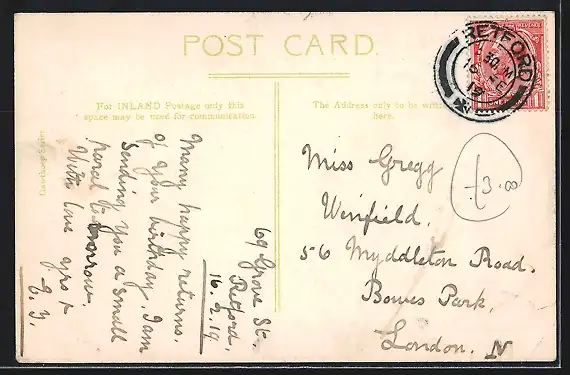 POST CARD.
For INLAND Postage only this
space may be used for communication.
The Address only to be written
here.
RETFORD
19
69 Grove St.
Retford,
16.2.19
Many happy returns
of your birthday. I am
sending you a small
parcel tomorrow.
With love
Miss Gregg
Winfield,
56 Myddleton Road,
Bowes Park,
London. N
£3.00